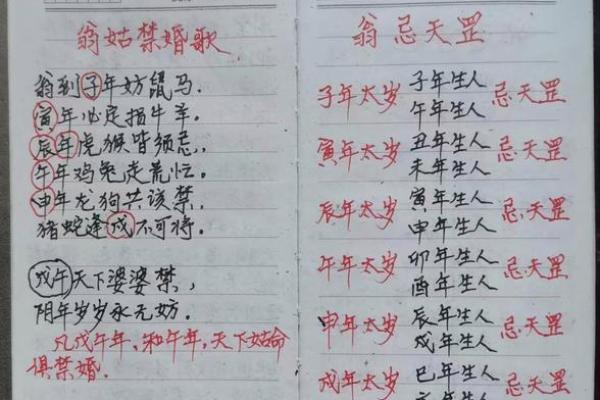 翁姑禁婚歌
翁到子年妨鼠马.
寅年必定损牛羊.
辰年虎猴皆须忌,
午年鸡兔走荒忙.
申年龙狗共该禁,
猪蛇逢戌不可将.
戊午天下婆婆禁,
阴年岁岁永无妨.
凡戊午年、和午年,天下姑命
俱禁婚.
翁忌天罡
子年太岁 子年生人 午年生人 忌天罡
寅年太岁 丑年生人 未年生人 忌天罡
辰年太岁 寅年生人 申年生人 忌天罡
午年太岁 卯年生人 酉年生人 忌天罡
申年太岁 辰年生人 戌年生人 忌天罡
戌年太岁 巳年生人 亥年生人 忌天罡